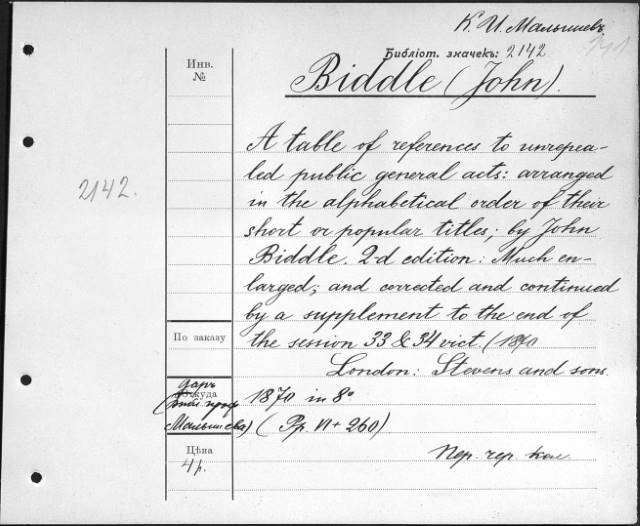 К. И. Малышевъ
Библіот. значекъ: 2142
Инв. №
Biddle (John).
A table of references to unrepea-
led public general acts: arranged
2142.
in the alphabetical order of their
short or popular titles; by John
Biddle. 2-d edition: Much en-
larged; and corrected and continued
by a supplement to the end of
По заказу
the session 33 & 34 vict. (1870
London: Stevens and sons.
даръ
1870 in 8°
Малышева) (Pp. VI + 260)
Цѣна
4 р.
Пер. чер. кол.